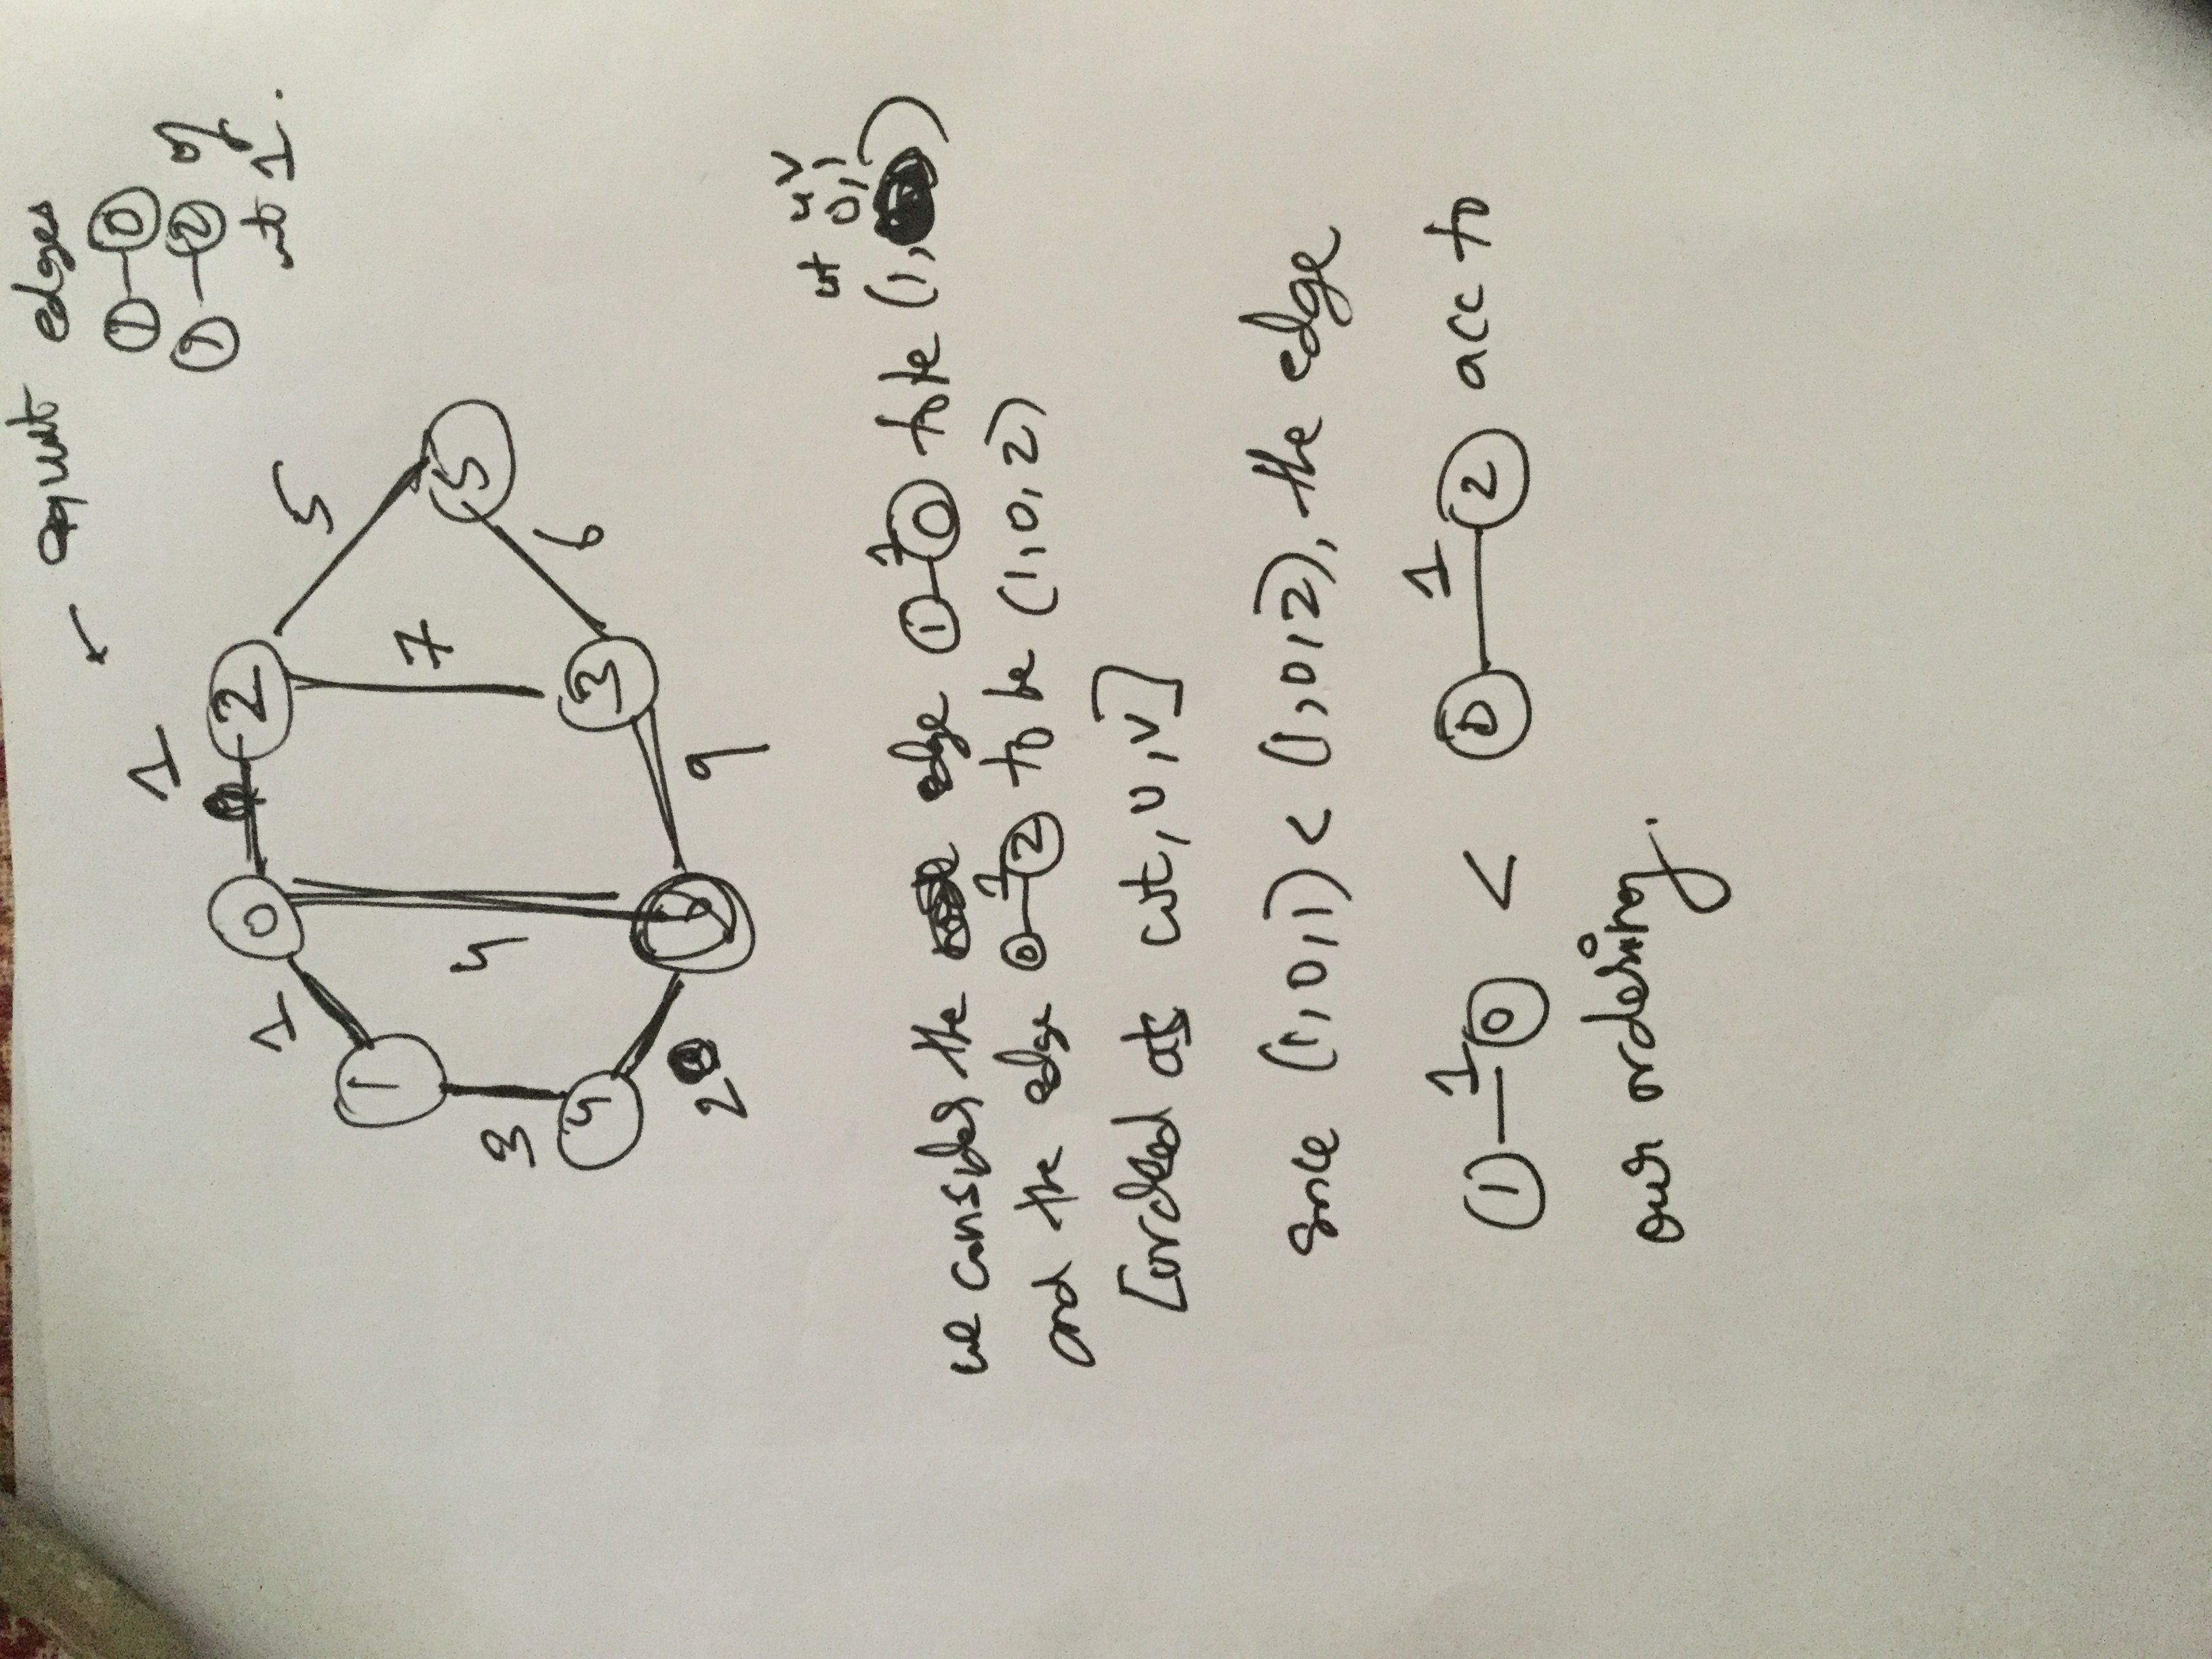 eq wt edges
1 0
1 2 of
wt 1.
1
1 0 2
5
1
4 7
3 5
4 3 6
6
2 9
wt u v
0,1
we consider the edge 1 1 0 to be (1, )
and the edge 0 1 2 to be (1,0,2)
[ordered as wt, u, v]
since (1,0,1) < (1,0,2), the edge
1 1 0 < 0 1 2 acc to
our ordering.